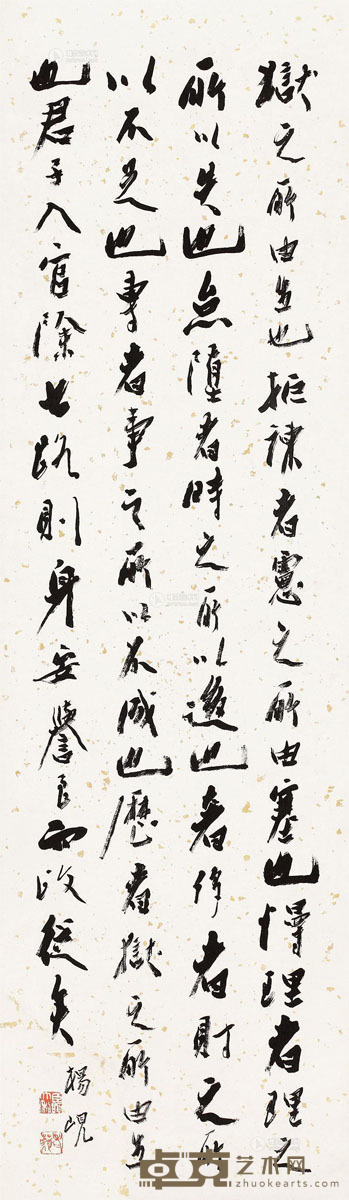 獄之所由生也拒諫者慮之所由塞也慢理者理之
所以失也怠墮者時之所以也奢侈者財之所
以不足也專者事之所以不成也歷者獄之所由生
也君子入官除七路則身安譽至而政從矣
楊峴
卓克艺术网
www.zhuokearts.com